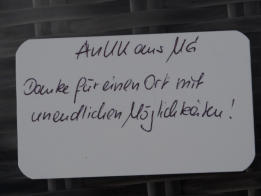 AnKK aus MG
Danke für einen Ort mit
unendlichen Möglichkeiten!